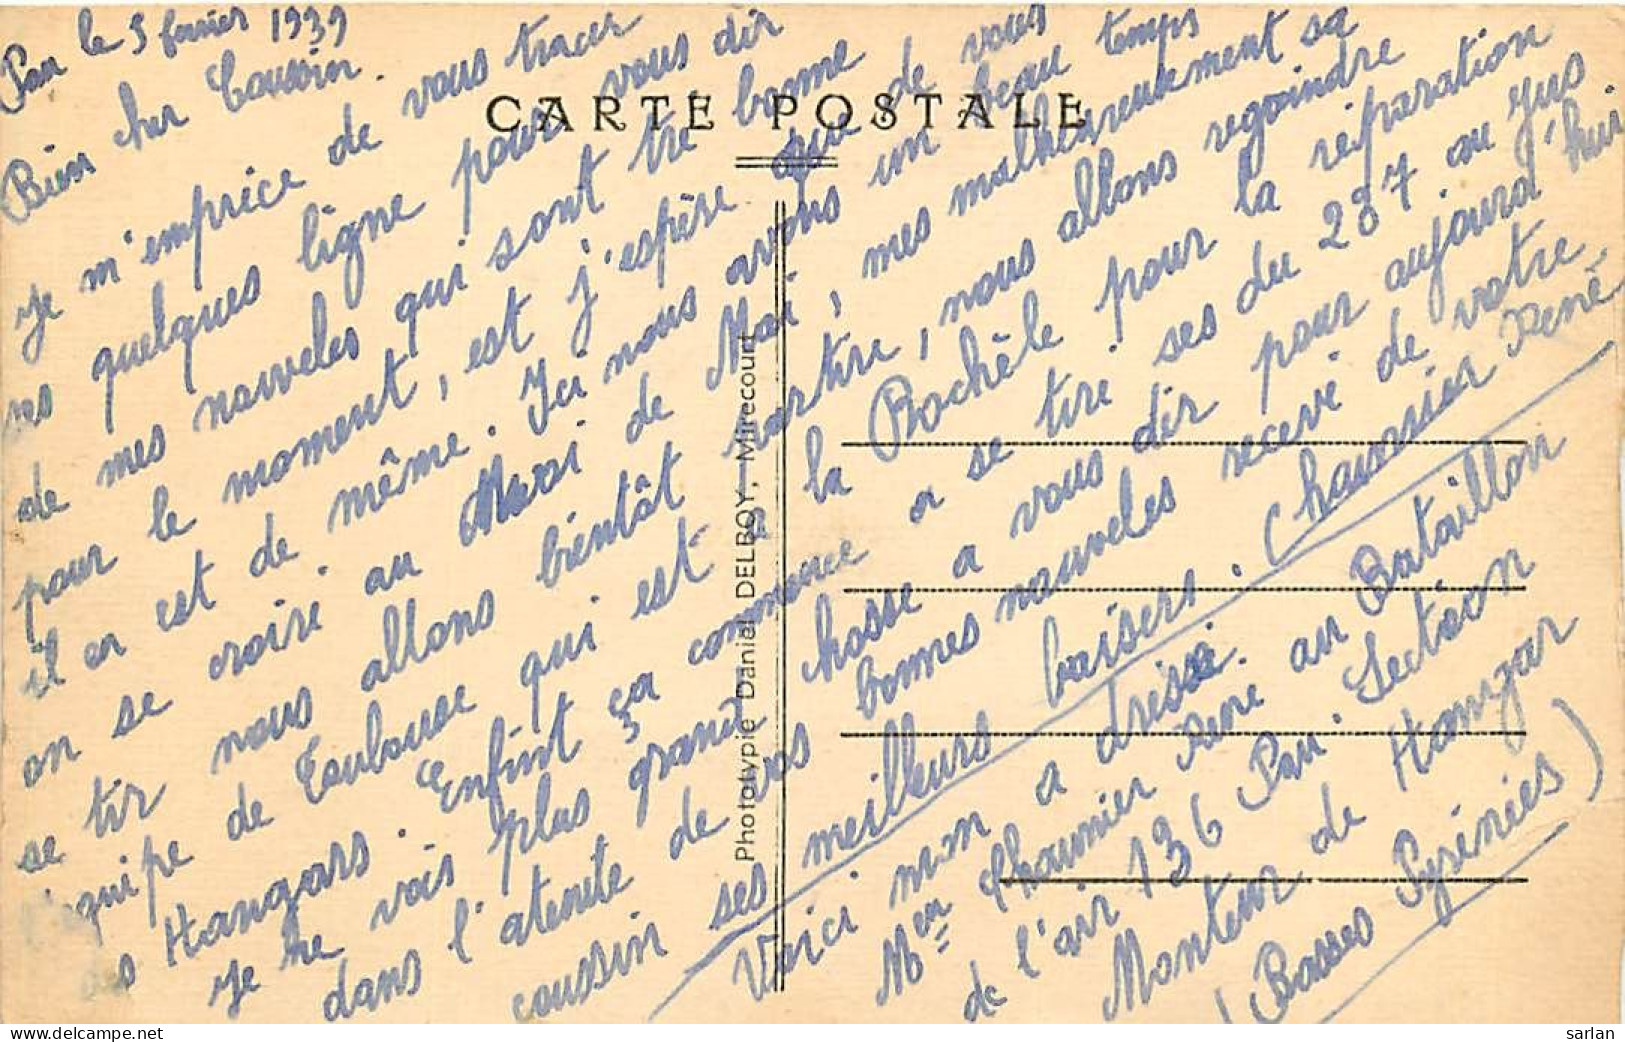 Pau le 5 fevrier 1939
Bien cher Coussin.
Je m'emprice de vous tracer
quelques ligne pour vous dir
de mes nouveles qui sont tré bonne
pour le moment, est j'espère que de vous
il en est de même. Ici nous avons un beau temps
on se croiré au Mwoi de Mai, mes malheureutement sa
se tir nous allons bientôt partire, nous allons regoindre
l'équipe de Toulouse qui est a la Rochêle pour la réparation
des Hangars. Enfint ça commence a se tiré ses du 287 au jus
Je ne vois plus grand chosse a vous dir pour aujourd'hui
dans l'atente de vos bonnes nouveles recevé de votre
coussin ses meilleurs baisers. Chaussier René
Voici mon adresse.
Mon Chaumier René au Bataillon
de l'air 136 Pau. Section
Monteur de Hangar
(Basses Pyrénées)
CARTE POSTALE
Phototypie Daniel DELBOY, Mirecourt
sarlan